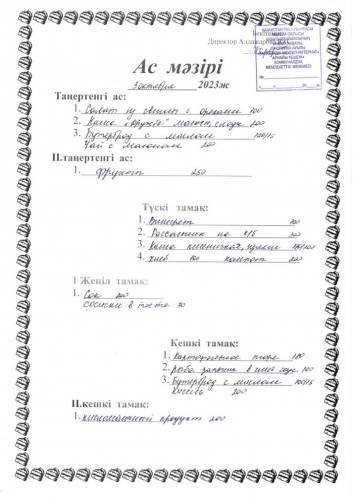 Бекітемін
Директор
Ас мәзірі
3 октября 2023ж
Таңертенгі ас:
1. Салат из свеклы с орехами 100
2. Каша "Дружба" молочн, сладк 200
3. Бутерброд с маслом 100/15
Чай с молоком 200
ІІ.таңертенгі ас:
1. Фрукты 250
Түскі тамақ:
1. Винегрет 100
2. Рассольник на м/б 250
3. Каша пшеничная, гуляш
4. хлеб 100 компот 200
І Жеңіл тамақ:
1. Сок 200
сосиски в тесте 70
Кешкі тамақ:
1. Картофельное пюре 180
2. рыба запечен в смет соусе 100
3. Бутерброд с маслом 100/15
кисель 200
ІІ.кешкі тамақ:
1. кисломолочный продукт 200